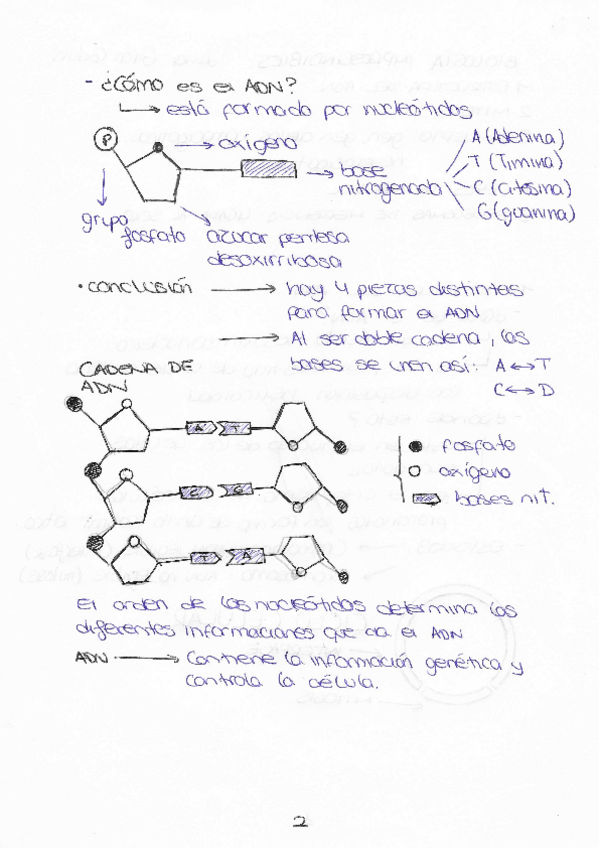 - ¿Cómo es el ADN?
está formado por nucleótidos
P
oxígeno
base
nitrogenada
A (Adenina)
T (Timina)
C (Citosina)
G (guanina)
grupo
fosfato
azúcar pentosa
desoxirribosa
• conclusión → hay 4 piezas distintas
para formar el ADN.
→ Al ser doble cadena, las
bases se unen así: A ↔ T
C ↔ D
CADENA DE
ADN
A T
C G
T A
fosfato
oxígeno
bases nit.
El orden de los nucleótidos determina las
diferentes informaciones que da el ADN
ADN → Contiene la información genética y
controla la célula.
2